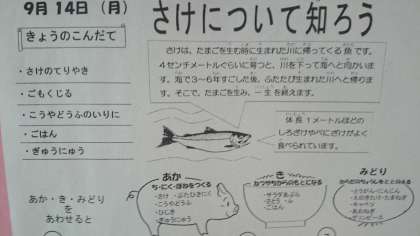 9月14日（月）
さけについて知ろう
きょうのこんだて
・さけのてりやき
・ごもくじる
・こうやどうふのいりに
・ごはん
・ぎゅうにゅう
さけは、たまごを生む時に生まれた川に帰ってくる魚です。
4センチメートルぐらいに育つと、川を下って海へと向かいます。
海で3～6年すごした後、ふたたび生まれた川へと帰ります。そこで、たまごを生み、一生を終えます。
体長1メートルほどの
しろざけやべにざけがよく
食べられています。
あか
ち・にく・ほねをつくる
・さけ・ぶたひきにく
・こうやどうふ
・ひじき
・ぎゅうにゅう
き
・サラダあぶら
・さとう
・ごはん
みどり
・にんじん
・キャベツ
あか・き・みどり
を
あわせると